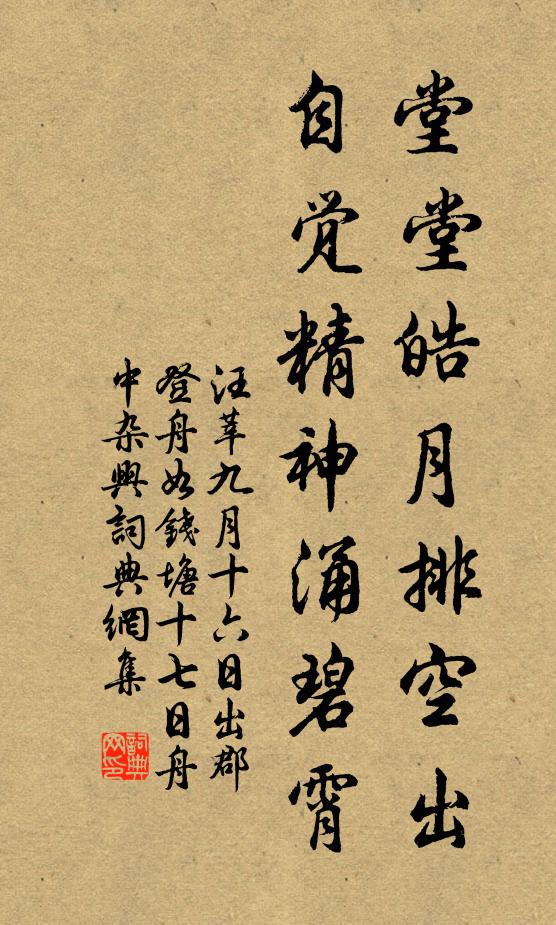 堂堂皓月排空出
自觉精神涌碧霄
汪莘九月十六日出郡
登舟如錢塘十七日舟
中杂興詞典網集
詞典
网印